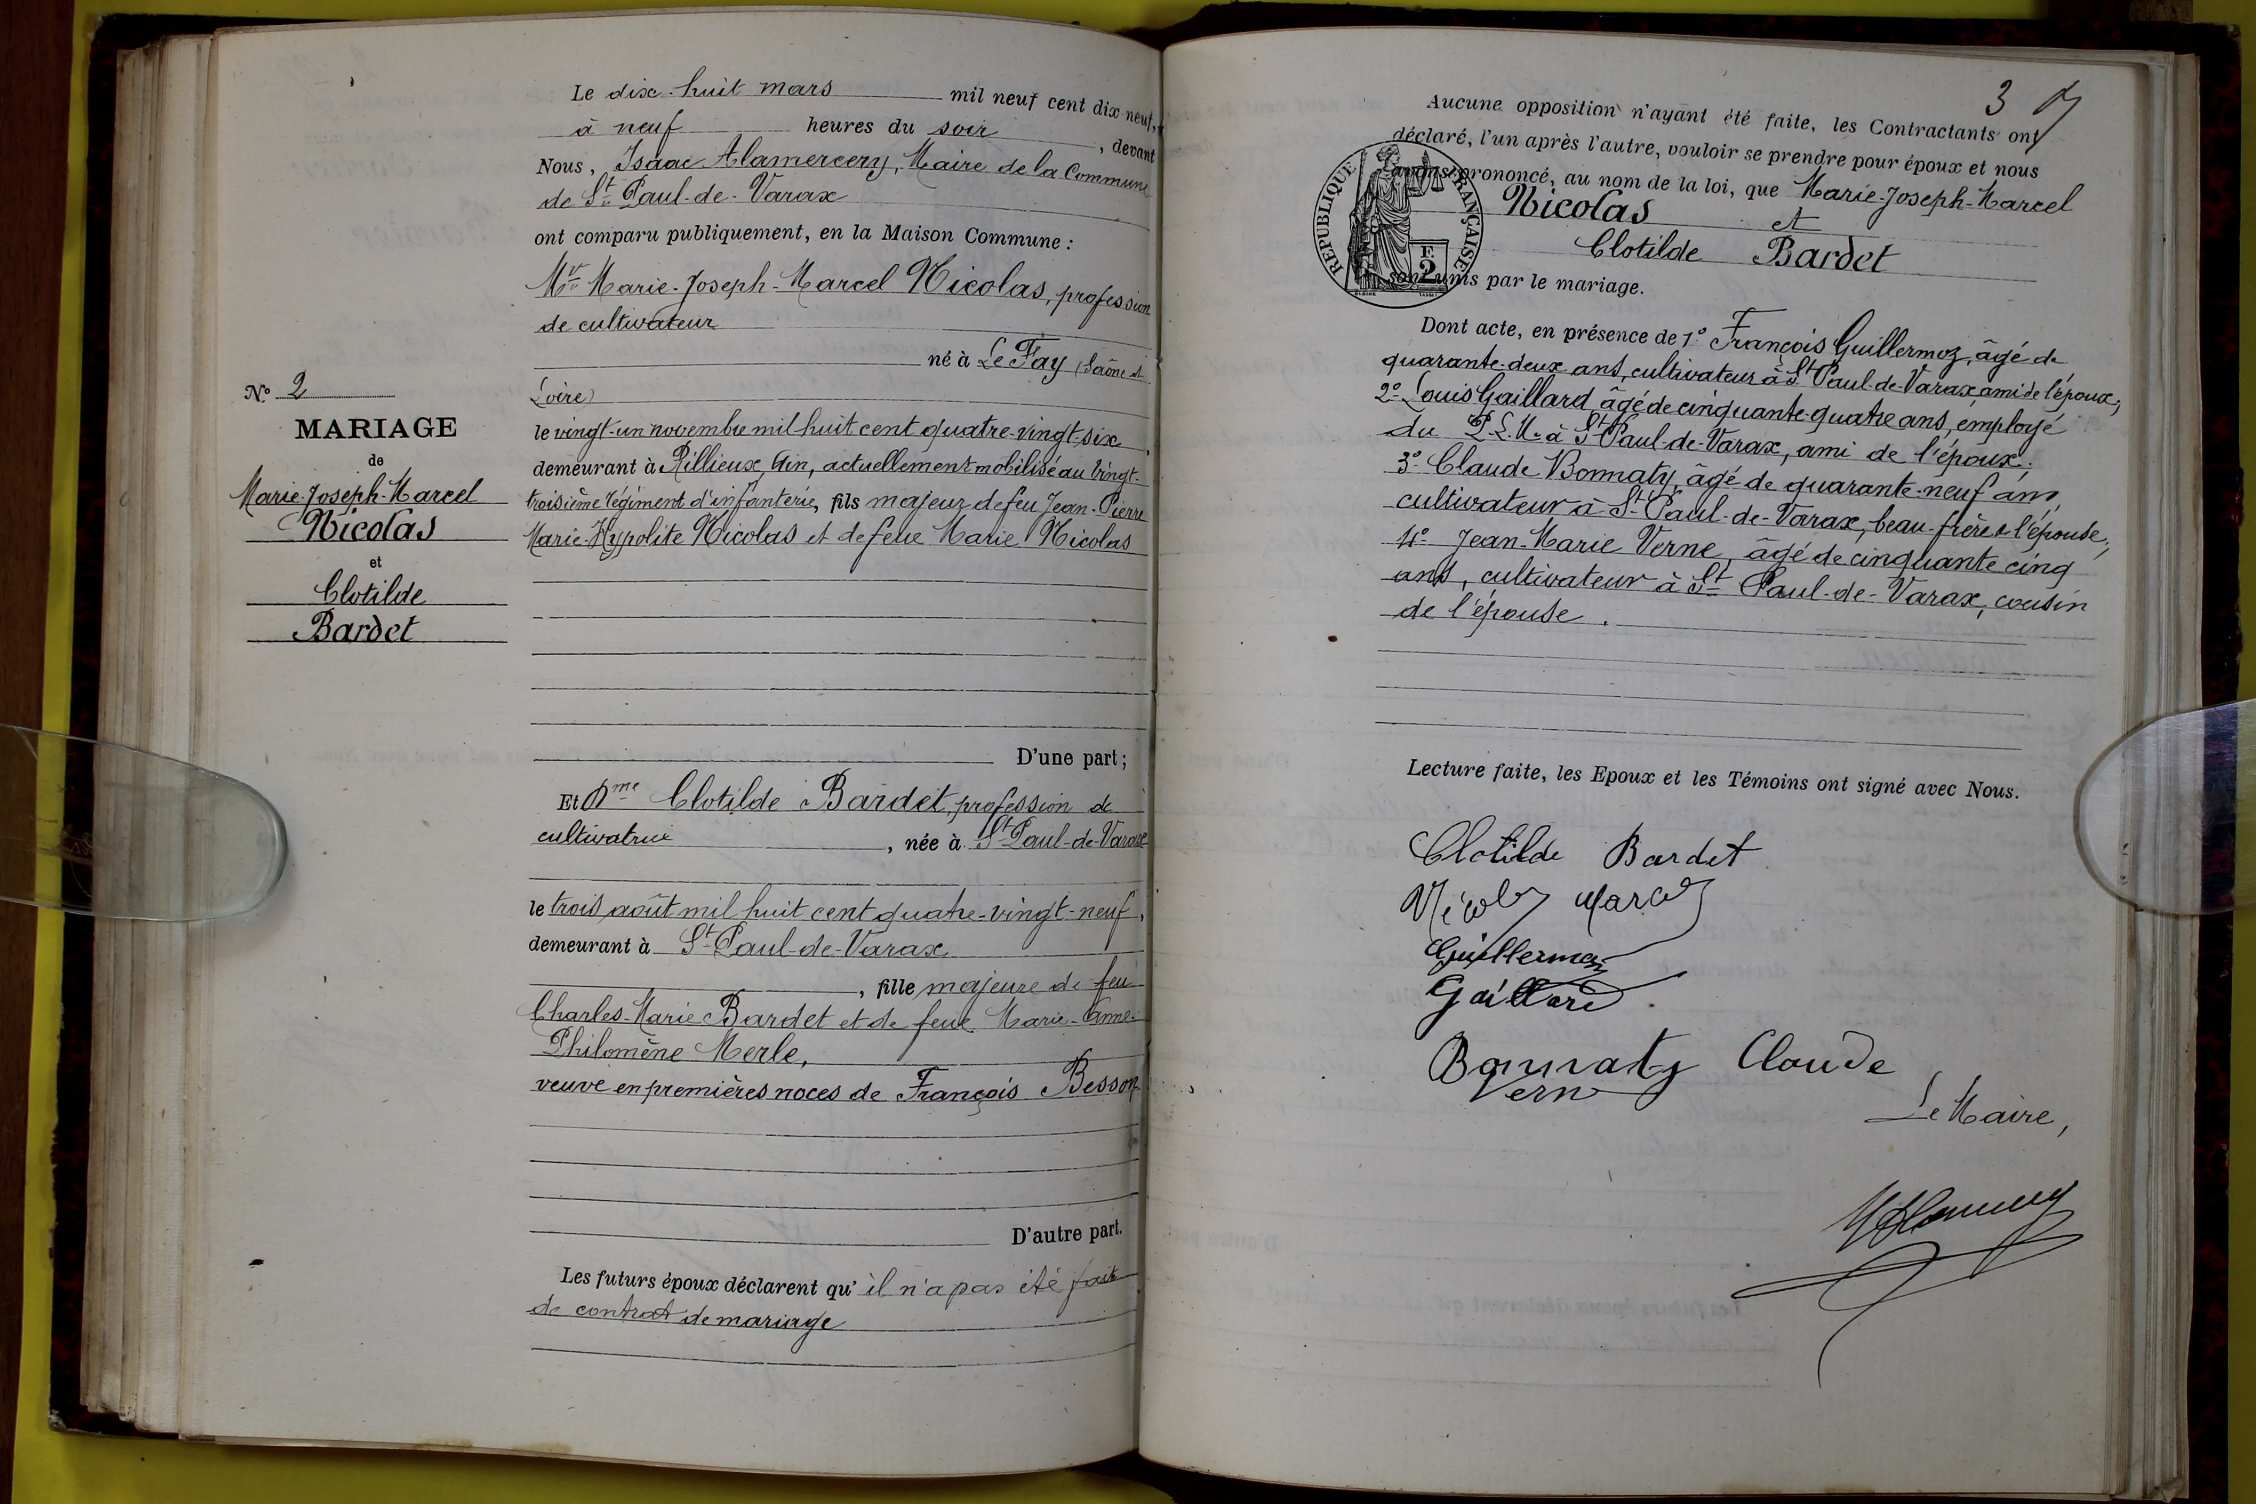 Le dix-huit mars mil neuf cent dix neuf,
à neuf heures du soir, devant
Nous, Isaac Alamercery, Maire de la Commune
de St Paul-de-Varax
ont comparu publiquement, en la Maison Commune :
Mr Marie-Joseph-Marcel Nicolas, profession
de cultivateur
né à Le Fay (Saône et
Loire)
le vingt-un novembre mil huit cent quatre-vingt-six,
demeurant à Rillieux, Ain, actuellement mobilisé au vingt-
troisième régiment d'infanterie, fils majeur de feu Jean-Pierre
Marie-Hypolite Nicolas et de feue Marie Nicolas
D'une part ;
Et Dme Clotilde Bardet, profession de
cultivatrice, née à St Paul-de-Varax
le trois août mil huit cent quatre-vingt-neuf,
demeurant à St Paul-de-Varax
, fille majeure de feu
Charles-Marie Bardet et de feue Marie-Anne-
Philomène Merle,
veuve en premières noces de François Besson
D'autre part.
Les futurs époux déclarent qu'il n'a pas été fait
de contrat de mariage
N° 2
MARIAGE
de
Marie-Joseph-Marcel
Nicolas
et
Clotilde
Bardet
3
Aucune opposition n'ayant été faite, les Contractants ont
déclaré, l'un après l'autre, vouloir se prendre pour époux et nous
avons prononcé, au nom de la loi, que Marie-Joseph-Marcel
Nicolas et
Clotilde Bardet
sont unis par le mariage.
RÉPUBLIQUE FRANÇAISE
F.
2
Dont acte, en présence de 1° François Guillermoz, âgé de
quarante-deux ans, cultivateur à St Paul-de-Varax, ami de l'époux;
2° Louis Gaillard âgé de cinquante-quatre ans, employé
du P.L.M. à St Paul-de-Varax, ami de l'époux;
3° Claude Bonnaty, âgé de quarante-neuf ans,
cultivateur à St Paul-de-Varax, beau-frère de l'épouse;
4° Jean-Marie Verne, âgé de cinquante cinq
ans, cultivateur à St Paul-de-Varax, cousin
de l'épouse.
Lecture faite, les Epoux et les Témoins ont signé avec Nous.
Clotilde Bardet
Nicolas Marcel
Guillermoz
Gaillard
Bonnaty Claude
Verne
Le Maire,